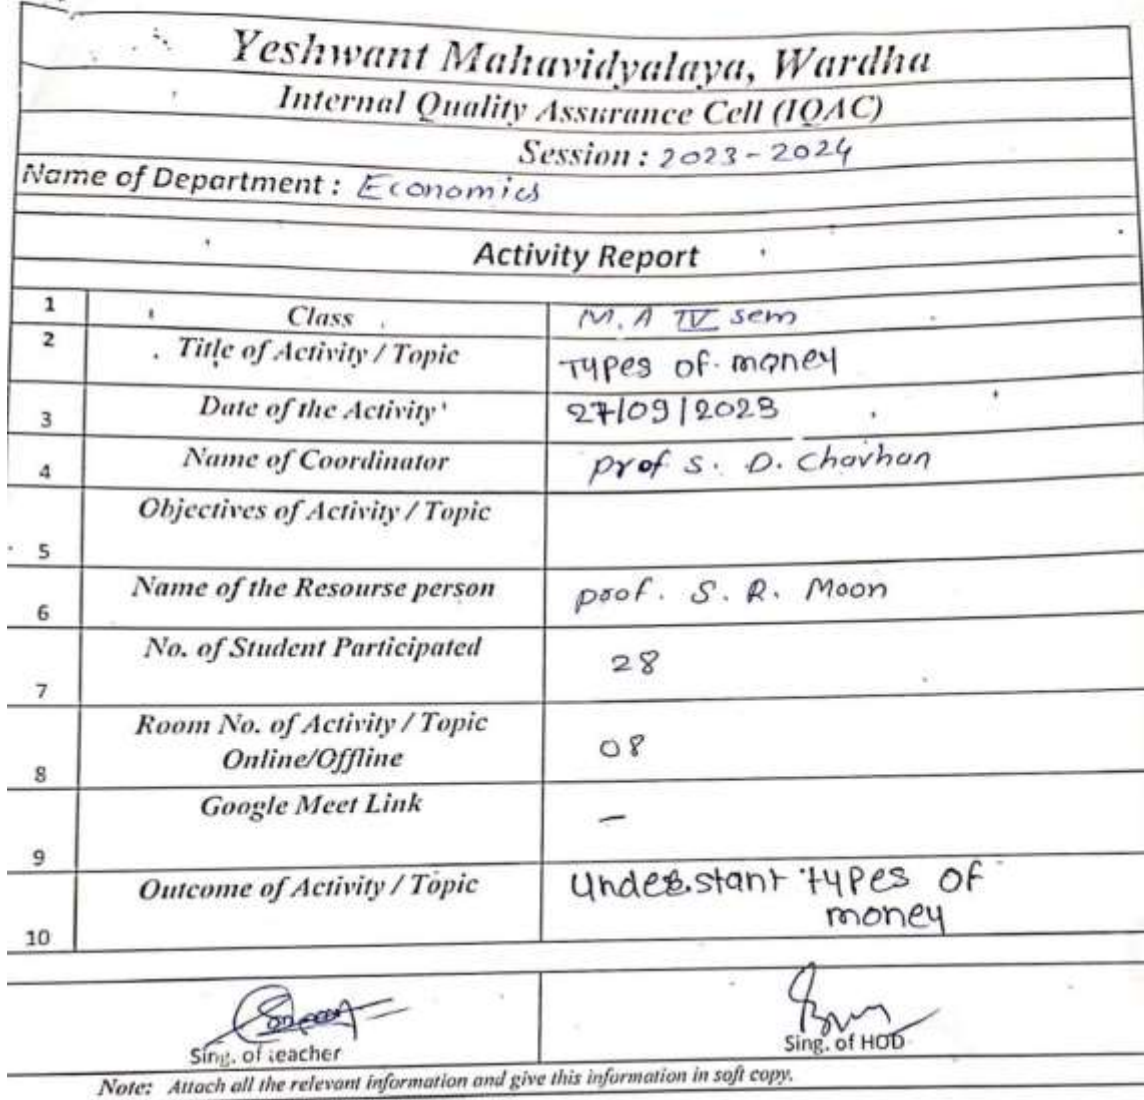 Yeshwant Mahavidyalaya, Wardha
Internal Quality Assurance Cell (IQAC)
Session : 2023-2024
Name of Department : Economics
Activity Report
1 Class M.A IV sem
2 Title of Activity / Topic Types of money
3 Date of the Activity 27/09/2023
4 Name of Coordinator prof S. D. Chavhan
5 Objectives of Activity / Topic
6 Name of the Resourse person proof. S. R. Moon
7 No. of Student Participated 28
8 Room No. of Activity / Topic 08
Online/Offline
9 Google Meet Link –
10 Outcome of Activity / Topic Understant types of
money
Sing. of teacher Sing. of HOD
Note: Attach all the relevant information and give this information in soft copy.